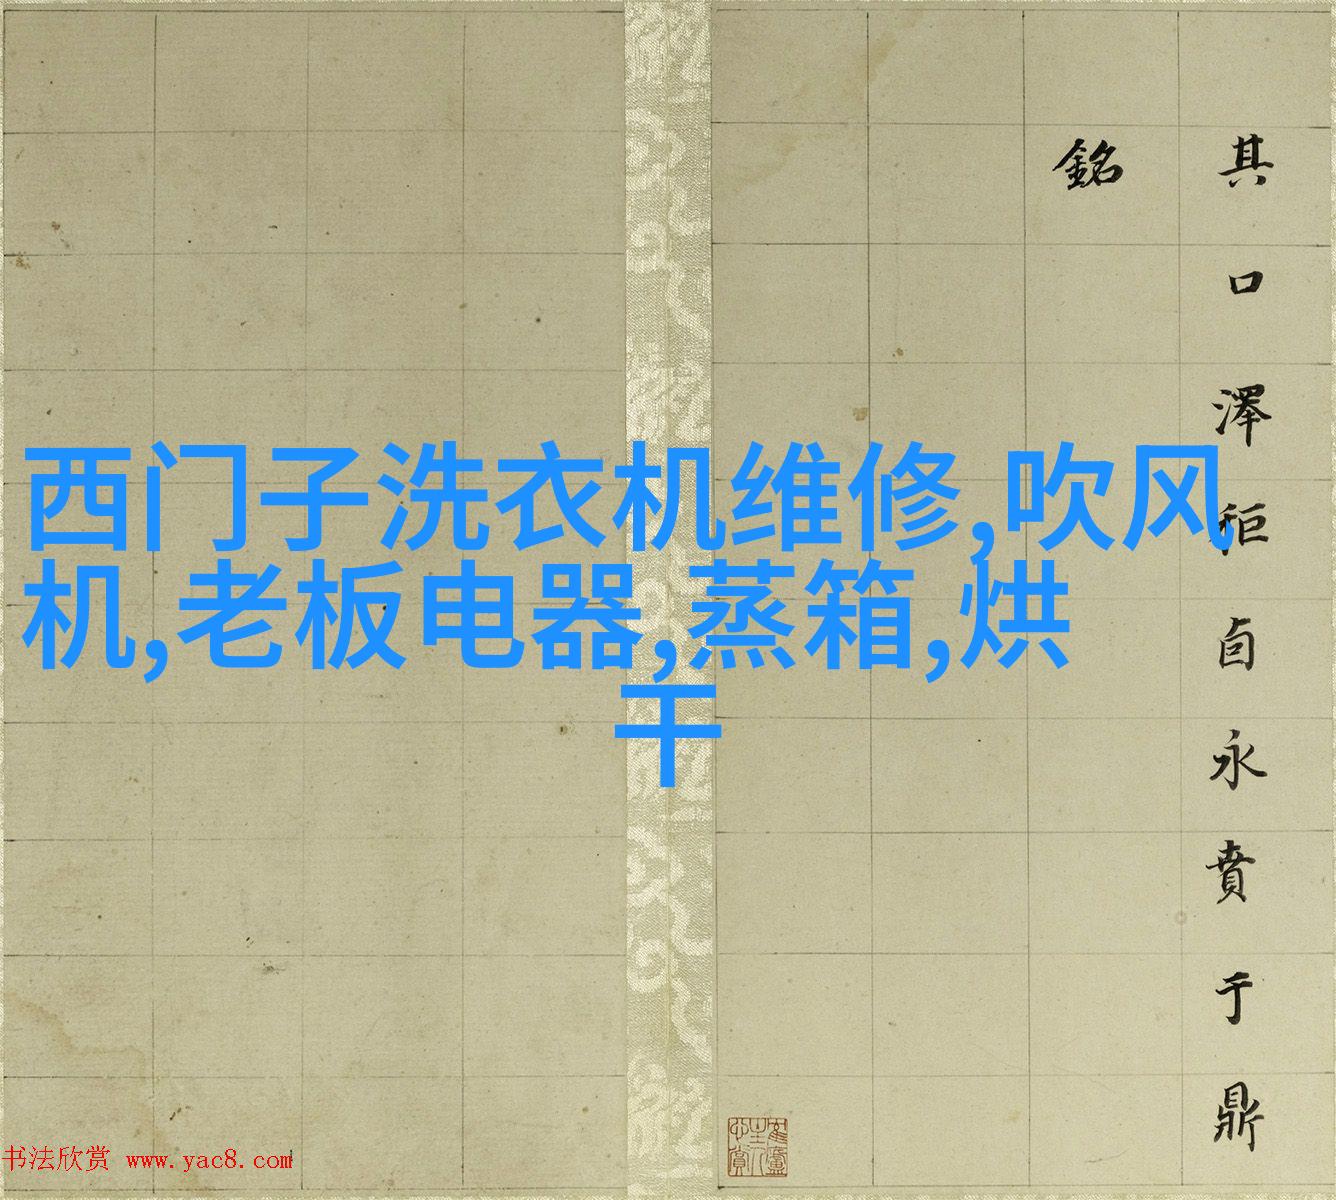 其口澤秬卣永賁于鼎
銘
西门子洗衣机维修,吹风
机,老板电器,蒸箱,烘
干
书法欣赏 www.yac8.com